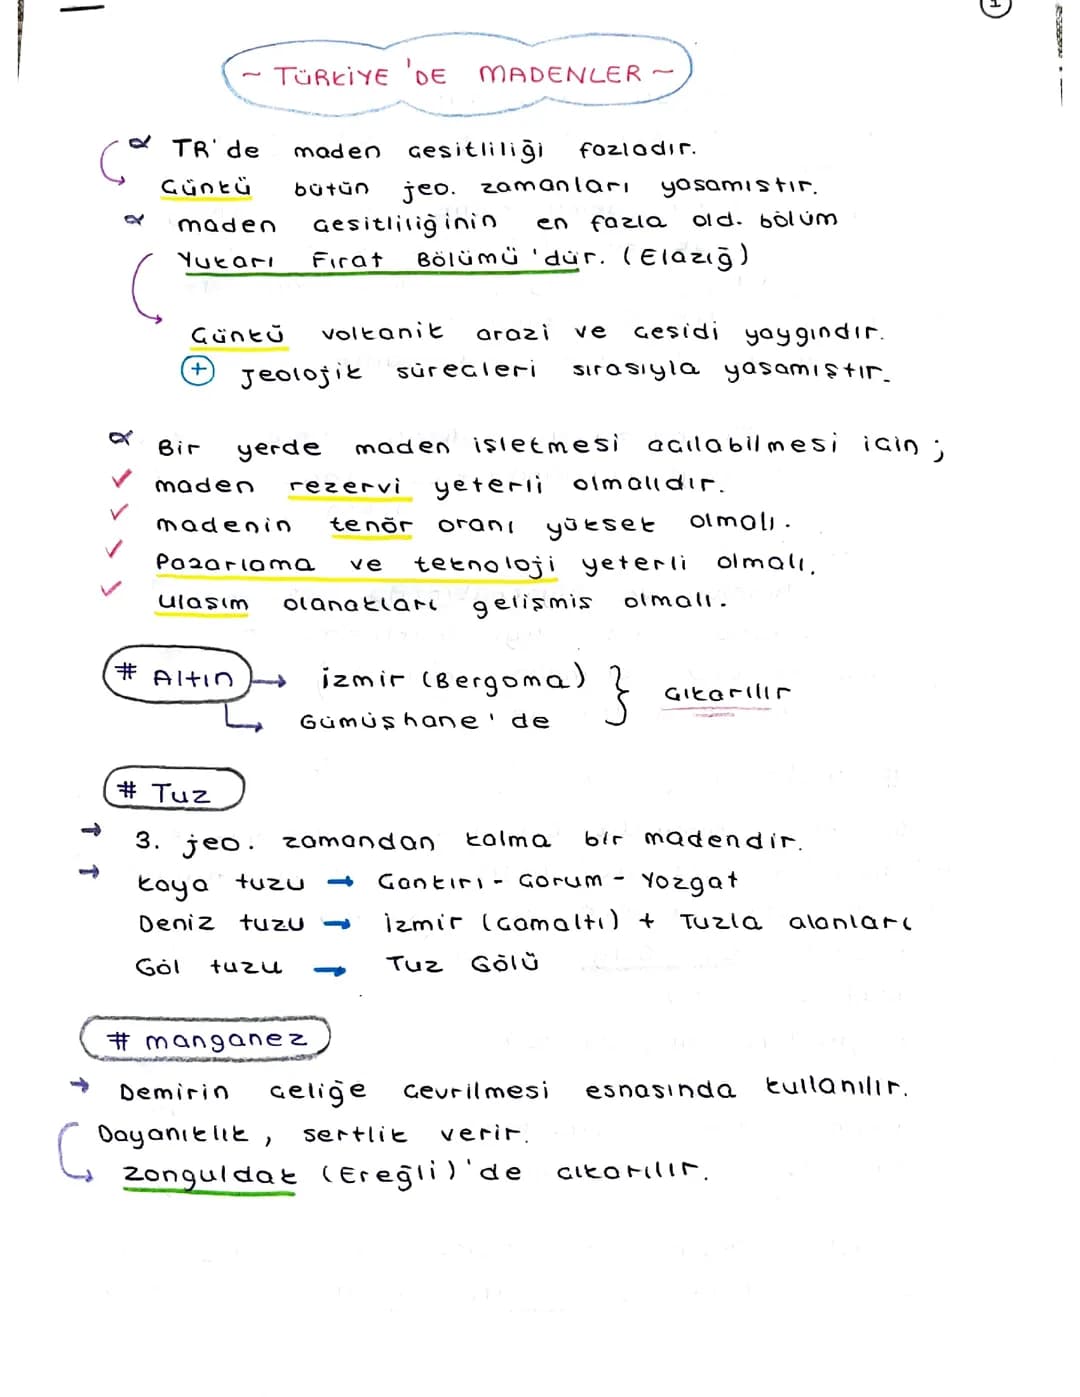 1
~ TÜRKİYE 'DE MADENLER ~
TR'de maden çeşitliliği fazladır.
Çünkü bütün jeo. zamanları yaşamıştır.
maden çeşitliliğinin en fazla old. bölüm
Yukarı Fırat Bölümü'dür. (Elazığ)
Çünkü volkanik arazi ve çeşidi yaygındır.
+ Jeolojik süreçleri sırasıyla yaşamıştır.
Bir yerde maden işletmesi açılabilmesi için;
✓ maden rezervi yeterli olmalıdır.
✓ madenin tenör oranı yüksek olmalı.
✓ Pazarlama ve teknoloji yeterli olmalı.
✓ ulaşım olanakları gelişmiş olmalı.
# Altın → İzmir (Bergama) } Çıkarılır
↳ Gümüşhane'de
# Tuz
→ 3. jeo. zamandan kalma bir madendir.
→ kaya tuzu → Çankırı - Çorum - Yozgat
Deniz tuzu → İzmir (Çamaltı) + Tuzla alanları
Göl tuzu → Tuz Gölü
# manganez
→ Demirin çeliğe çevrilmesi esnasında kullanılır.
Dayanıklık, sertlik verir.
Zonguldak (Ereğli)'de çıkarılır.